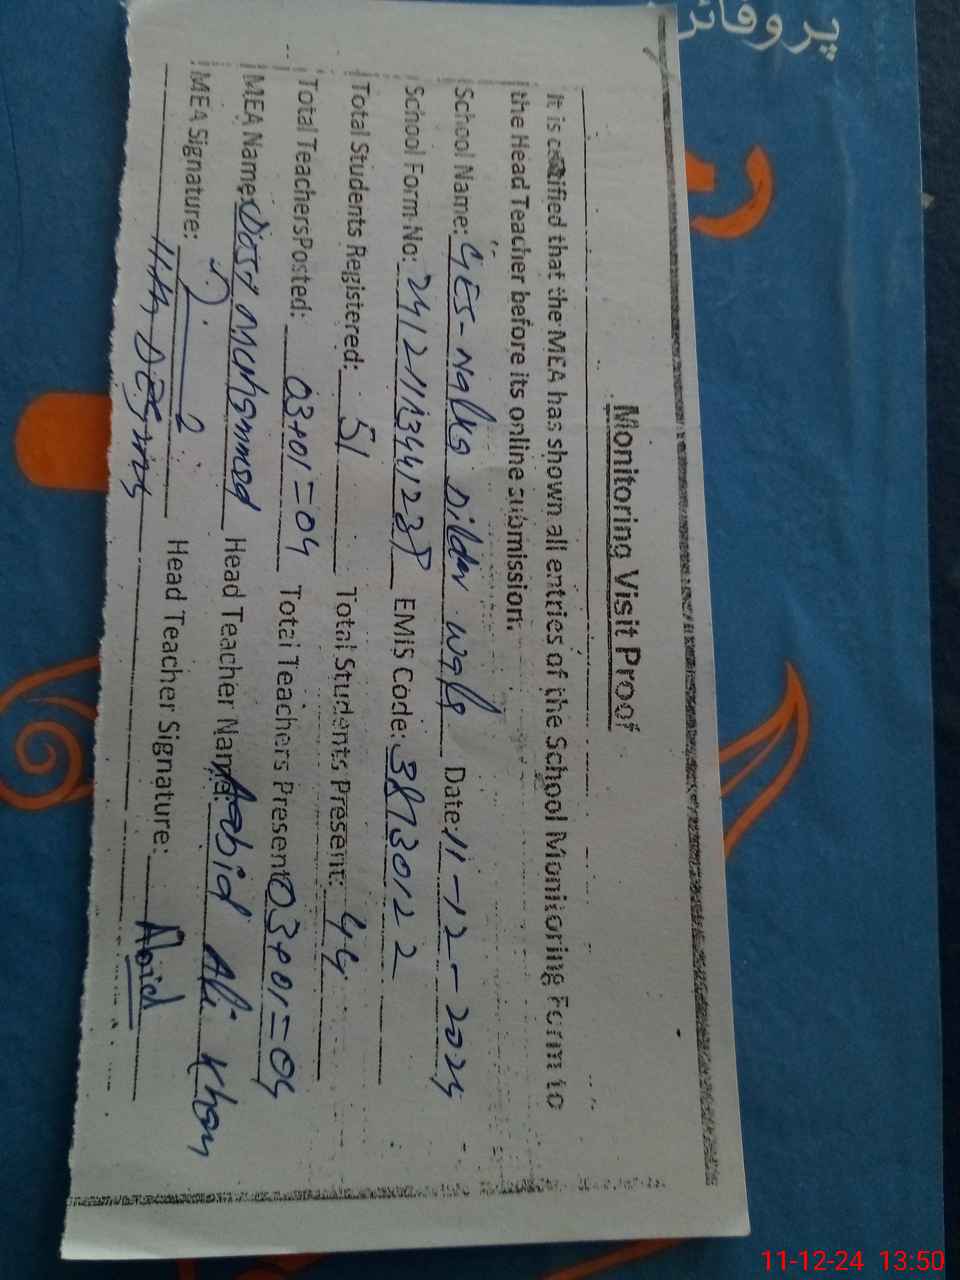 پروفائز
Monitoring Visit Proof
It is certified that the MEA has shown all entries of the School Monitoring Form to
the Head Teacher before its online submission.
School Name: GES-Nalka Dildar wala Date: 11-12-2024
School Form No: EMIS Code: 38730122
Total Students Registered: 51 Total Students Present: 44
Total Teachers Posted: 03+01=04 Total Teachers Present 03+01=04
MEA Name: Dost Muhammad Head Teacher Name: Aabid Ali Khan
MEA Signature: Head Teacher Signature: Abid
11-12-24 13:50